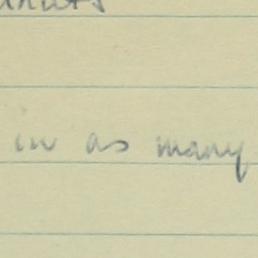 in as many